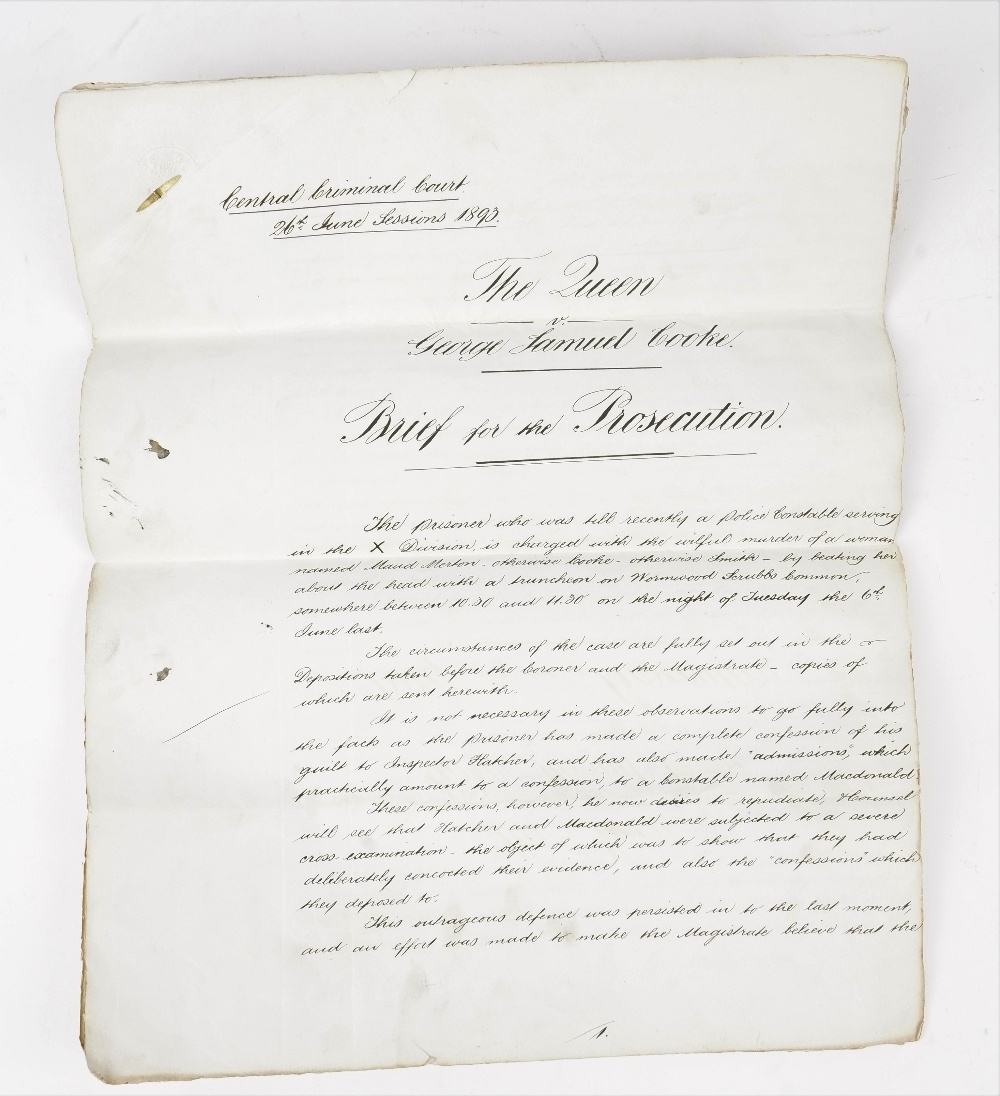 Central Criminal Court
26th June Sessions 1893.
The Queen
v.
George Samuel Cooke.
Brief for the Prosecution.
The prisoner who was till recently a Police Constable serving
in the X Division, is charged with the wilful murder of a woman
named Maud Merton - otherwise Cooke - otherwise Smith - by beating her
about the head with a truncheon on Wormwood Scrubbs Common,
somewhere between 10.30 and 11.30 on the night of Tuesday the 6th
June last.
The circumstances of the case are fully set out in the
Depositions taken before the Coroner and the Magistrate - copies of
which are sent herewith.
It is not necessary in these observations to go fully into
the facts as the prisoner has made a complete confession of his
guilt to Inspector Hatcher, and has also made "admissions", which
practically amount to a confession, to a Constable named Macdonald
These confessions, however, he now desires to repudiate, & Counsel
will see that Hatcher and Macdonald were subjected to a severe
cross-examination - the object of which was to show that they had
deliberately concocted their evidence, and also the "confessions" which
they deposed to.
This outrageous defence was persisted in to the last moment,
and an effort was made to make the Magistrate believe that the
1.